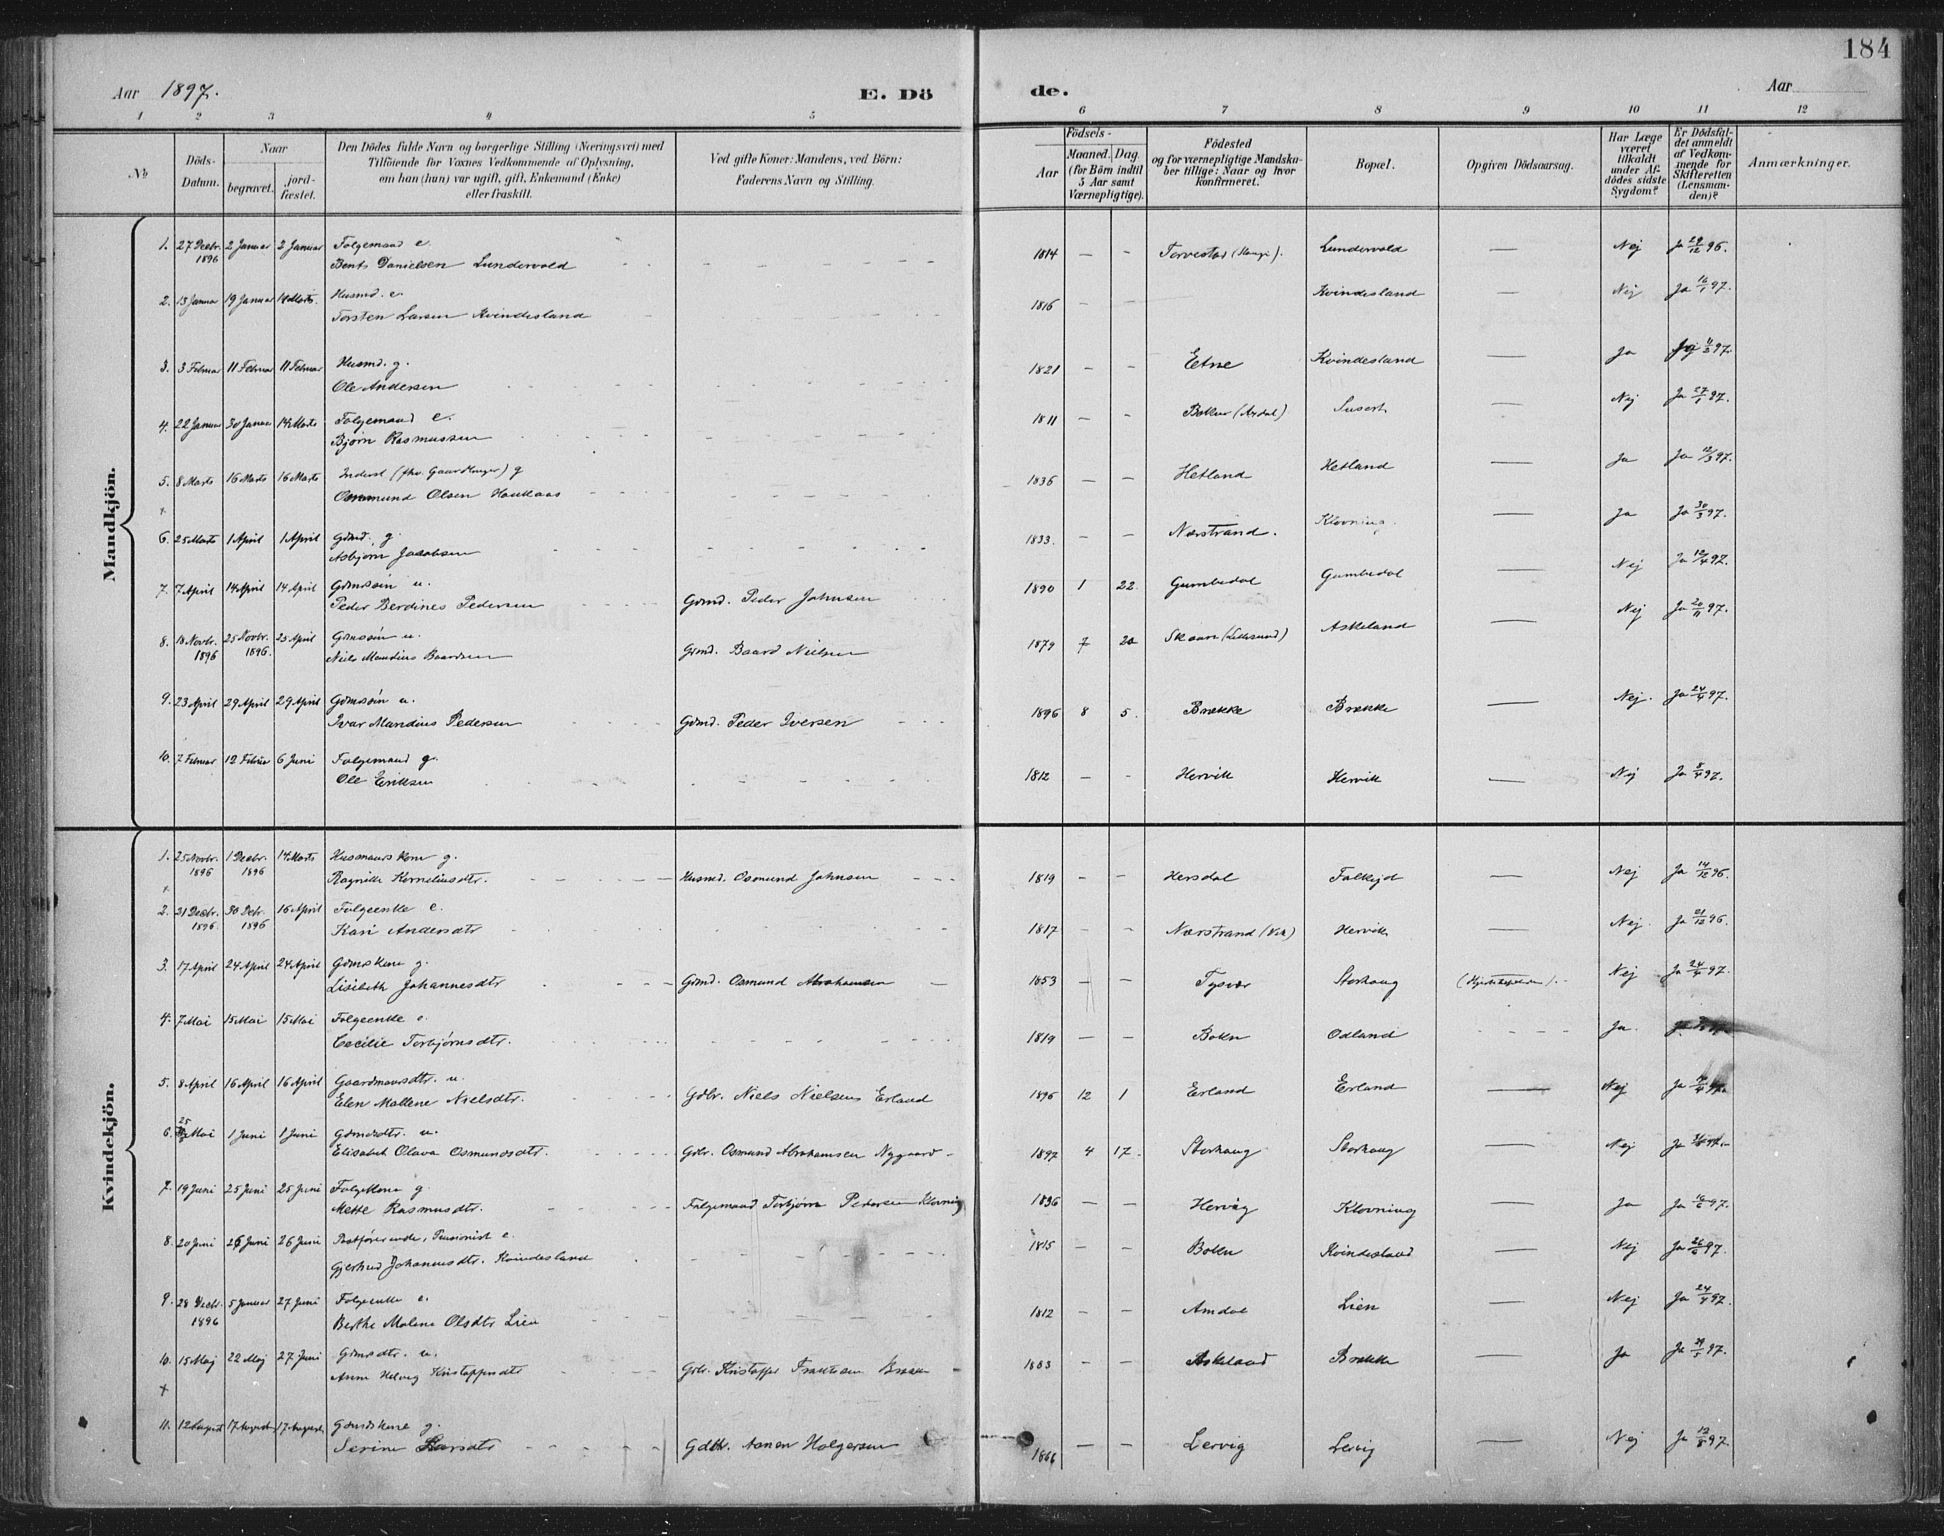 184
Aar 1897.
E. Dö
de.
Aar
1 2 3 4 5 6 7 8 9 10 11 12
No
Döds-Datum.
Naar
begravet.
jord-fæstet.
Den Dödes fulde Navn og borgerlige Stilling (Næringsvei) med
Tilföiende for Voxnes Vedkommende af Oplysning,
om han (hun) var ugift, gift, Enkemand (Enke)
eller fraskilt.
Ved gifte Koner: Mandens, ved Börn:
Faderens Navn og Stilling.
Födsels-
Aar
Maaned. Dag.
(for Börn indtil
5 Aar samt
Værnepligtige).
Födested
og for værnepligtige Mandska-
ber tillige: Naar og hvor
konfirmeret.
Bopæl.
Opgiven Dödsaarsag.
Har Læge
været
tilkaldt
under Af-
dödes sidste
Sygdom?
Er Dödsfal-
det anmeldt
af Vedkom-
mende for
Skifteretten
(Lensman-
den)?
Anmærkninger.
Mandkjön.
1. 27 Decbr. 1896 2 Januar 2 Januar Folgemand e. 1814 — — Torvestad Lundervold — Nej Ja 29/12 96.
Bent Danielsen Lundervold
2. 13 Januar 19 Januar 14 Marts Husmd. e. 1816 — — Kvindesland — Nej Ja 16/1 97.
Torsten Larsen Kvindesland
3. 3 Februar 11 Februar 11 Februar Husmd. g. 1821 — — Etne Kvindesland — Ja 11/2 97.
Ole Andersen
4. 22 Januar 30 Januar 14 Marts Folgemand e. 1811 — — Bokn Susort — Nej Ja 27/1 97.
Bjørn Rasmussen
5. 8 Marts 16 Marts 16 Marts Inderst g 1836 — — Hetland Hetland — Ja Ja 12/3 97.
Osmund Olsen Haukaas
6. 25 Marts 1 April 1 April Gbmd. g. 1833. — — Nærstrand. Klovning — Ja Ja 30/3 97.
Asbjørn Jacobsen
7. 7 April 14 April 14 April Gbmdsøn u. 1890 1 22. Gumbedal Gumbedal — Nej Ja 12/4 97.
Peder Berdines Pedersen Gbmd. Peder Johnsen
8. 18 Novbr. 1896 25 Novbr. 1896. 25 April Gbmdsøn u. 1879 7 20 Skaar Askeland — Nej Ja 20/11 97.
Niels Mandius Baardsen Gbmd. Baard Nielsen
9. 23 April 29 April 29 April Gbmdsøn u. 1896 8 5. Brekke Brekke — Nej. Ja 24/4 97.
Ivar Mandius Pedersen Gbmd. Peder Iversen
10. 7 Februar 12 Februar 6 Juni Folgemand g. 1812 — — Hervik Hervik — Nej Ja 8/4 97.
Ole Eriksen
Kvindekjön.
1. 25 Novbr. 1896 1 Decbr. 1896 14 Marts Husmanskone g. 1819 — — Hersdal Falkejd — Nej Ja 14/12 96.
Ragnilde Korneliusdtr. Husmd. Osmund Johnsen
2. 21 Decbr. 1896. 30 Debr. 1896 16 April Folgeenke e. 1817 — — Nærstrand Hervik — Nej Ja 21/12 96.
Kari Andersdtr
3. 17 April 24 April 24 April Gbmdskone g. 1853 — — Tysvær Storhaug Nej Ja 24/4 97.
Lisibeth Johannesdtr Gbmd. Osmund Abrahamsen
4. 7 Mai 15 Mai 15 Mai Folgeenke e. 1819 — — Bokn Odland Ja.
Cecilie Torbjørnsdtr.
5. 8 April 16 April 16 April Gaardmansdtr. u. 1896 12 1 Erland Erland — Nej
Elen Mallene Nielsdtr. Gdbr. Niels Nielsens Erland
6. 25 Mai 1 Juni 1 Juni Gbmdsdtr. u. 1897 4 17. Storhaug Storhaug — Nej
Elisabet Olava Osmundsdtr. Gdbr. Osmund Abrahamsen Nygaard
7. 19 Juni 25 Juni 25 Juni Folgekone g 1836 — — Hervig Klovning — Ja Ja 16/6 97.
Mette Rasmusdtr. Folgemand Torbjørn Pedersen Klovning
8. 20 Juni 26 Juni 26 Juni Postførerenke, Pensionist e. 1815 — — Bokn Kvindesland — Nej Ja 26/6 97.
Gjertrud Johannesdtr. Kvindesland
9. 28 Decbr. 1896 5 Januar 27 Juni Folgeenke e. 1812 — — Amdal Lien — Nej Ja 24/4 97.
Berthe Malene Olsdtr Lien
10. 15 Maj 22 Maj 27 Juni Gbmdsdtr. u. 1883 — — Askeland Brekke — Ja
Anne Helvig Kristoffersdtr Gdbr. Kristoffer
11. 12 August 17 August 17 August Gbmdskone g. 1866 — — Lervig Lervig — Nej Ja 12/8 97.
Serine Larsdtr Gdbr. Aanen Holgersen